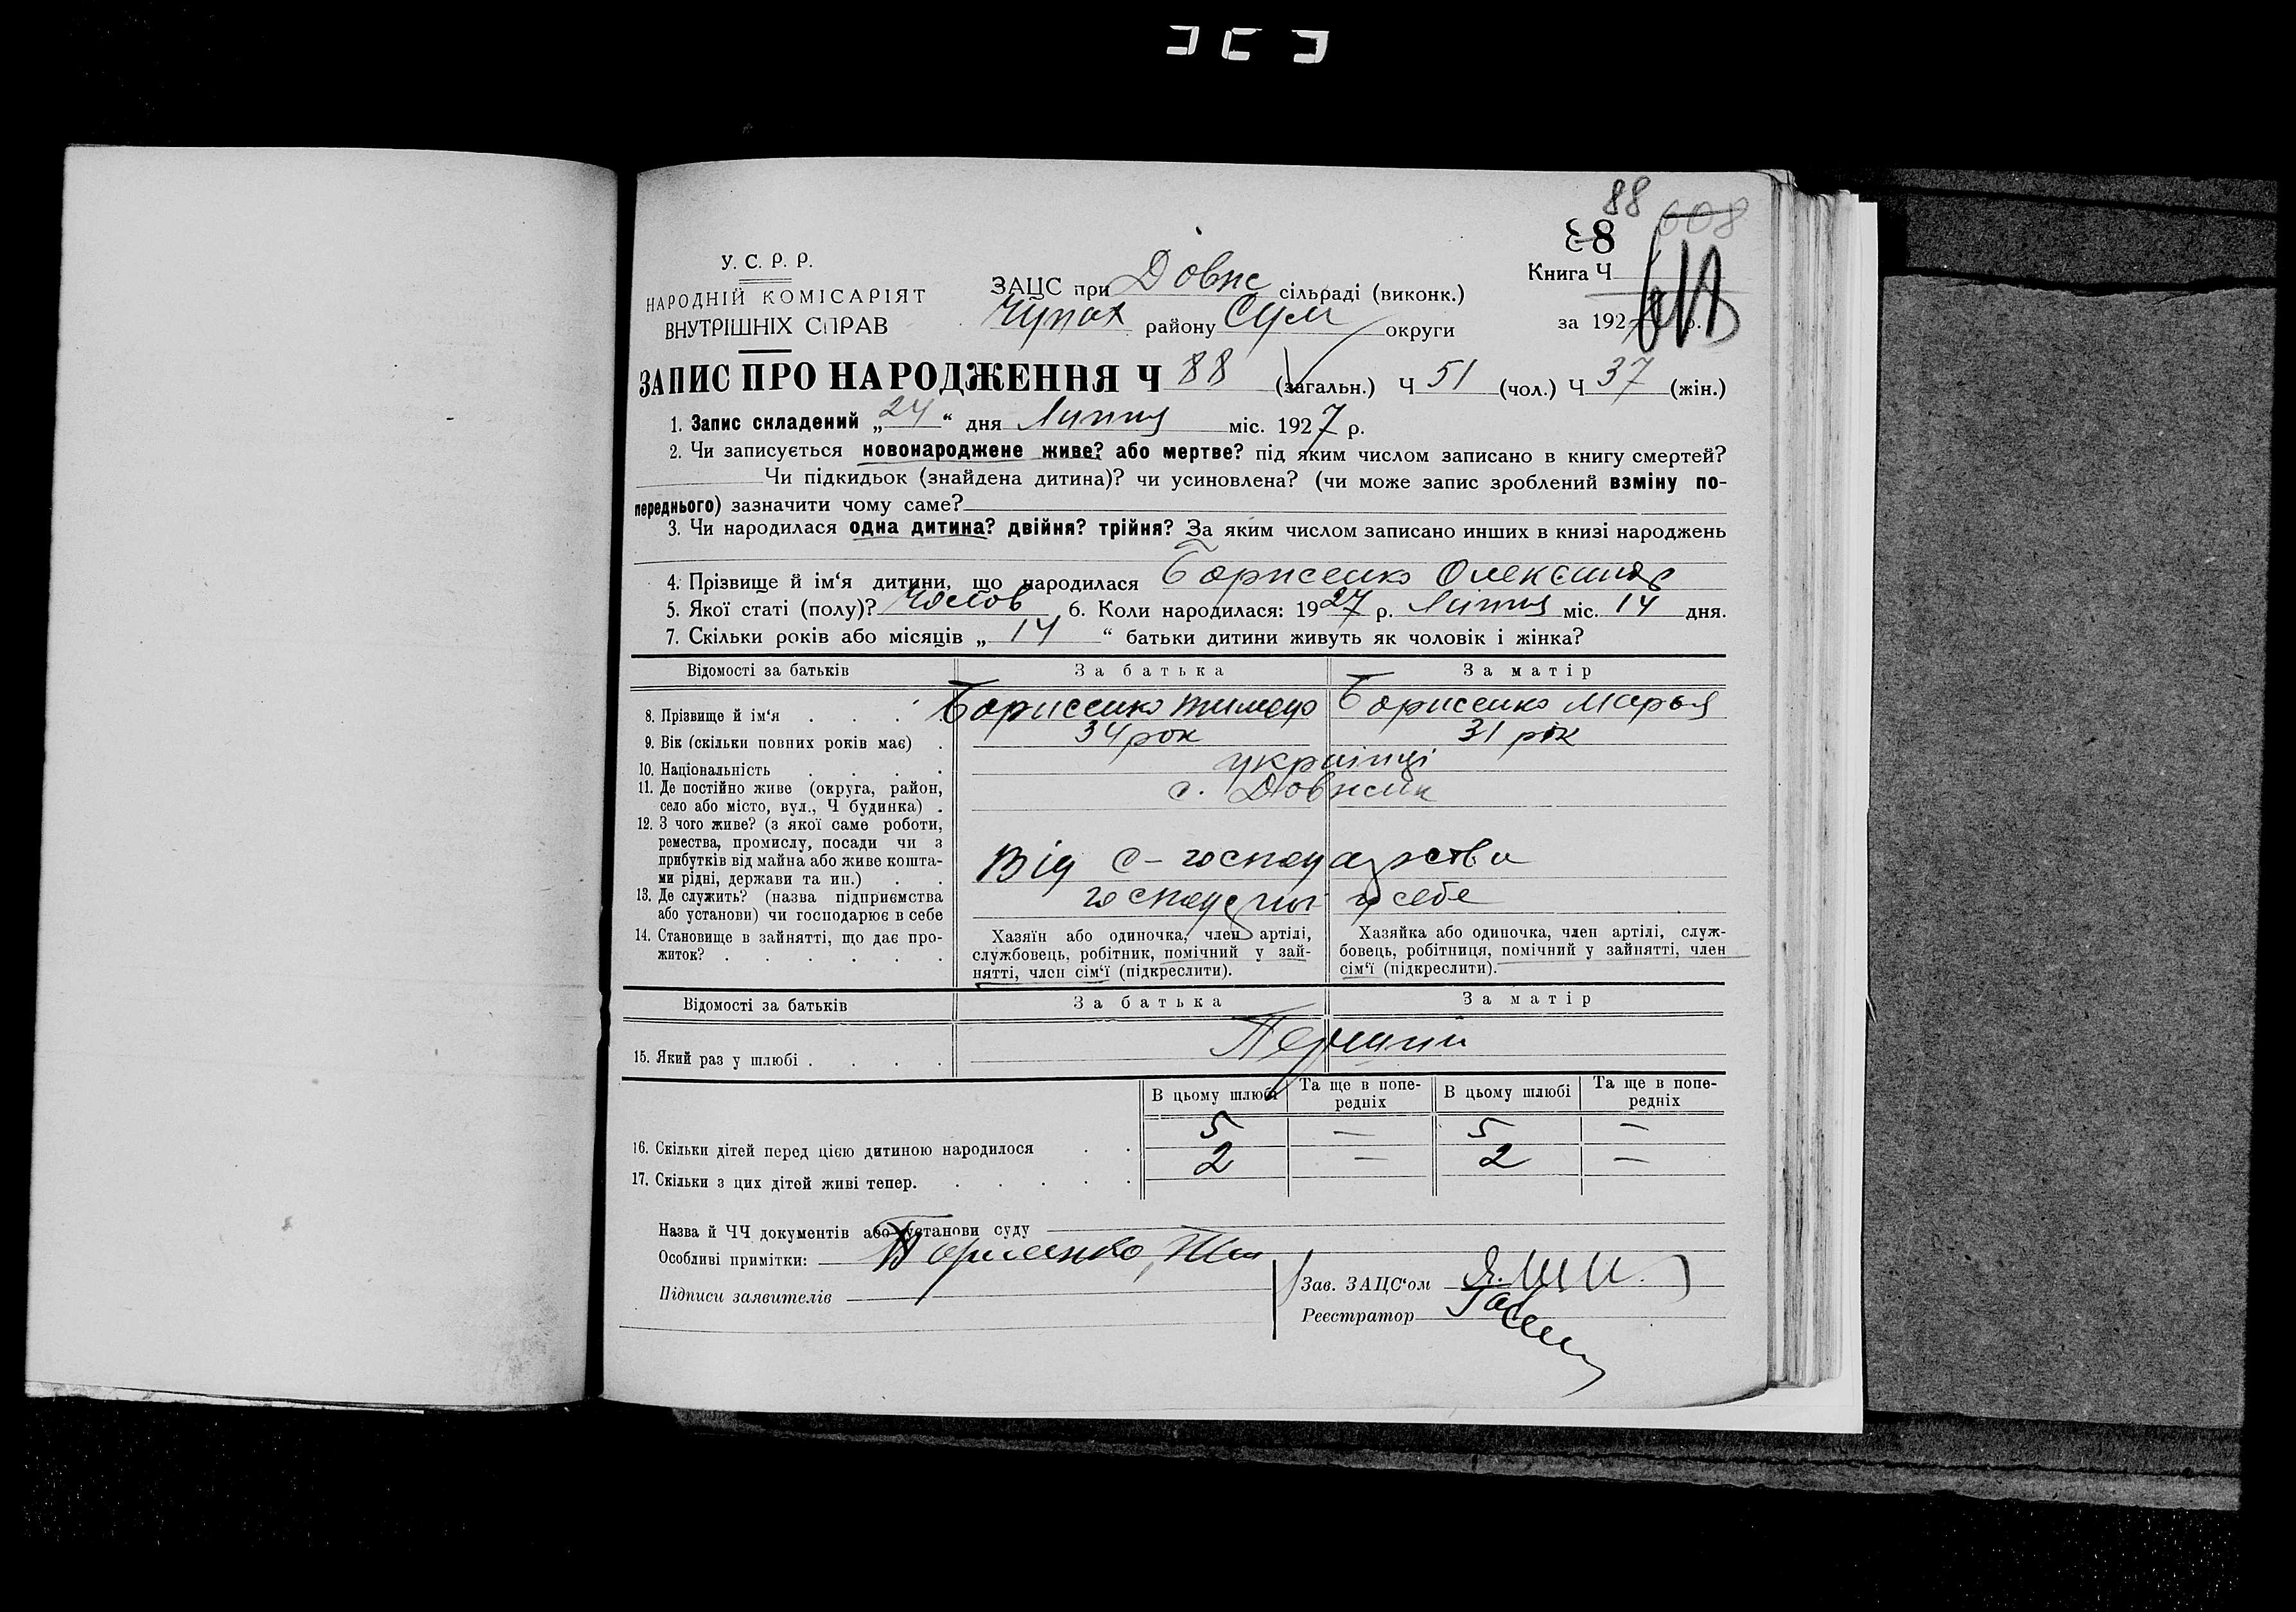 88 608
88
У. С. Р. Р.
НАРОДНІЙ КОМІСАРІЯТ
ВНУТРІШНІХ СПРАВ
ЗАЦС при Довж сільраді (виконк.)
Чупах району Сум округи
Книга Ч
за 1927 р.
ЗАПИС ПРО НАРОДЖЕННЯ Ч 88 (загальн.) Ч 51 (чол.) Ч 37 (жін.)
1. Запис складений „24“ дня Липня міс. 1927 р.
2. Чи записується новонароджене живе? або мертве? під яким числом записано в книгу смертей?
Чи підкидьок (знайдена дитина)? чи усиновлена? (чи може запис зроблений взміну по-
переднього) зазначити чому саме?
3. Чи народилася одна дитина? двійня? трійня? За яким числом записано инших в книзі народжень
4. Прізвище й ім‘я дитини, що народилася Борисенко Олександр
5. Якої статі (полу)? Чолов 6. Коли народилася: 1927 р. Липня міс. 14 дня.
7. Скільки років або місяців „ 14 “ батьки дитини живуть як чоловік і жінка?
Відомості за батьків За батька За матір
8. Прізвище й ім‘я . . . . Борисенко Тимофр Борисенко Марья
9. Вік (скільки повних років має) . 34 рок 31 рік
10. Національність . . . . українці
11. Де постійно живе (округа, район,
село або місто, вул., Ч будинка) . с. Довжик
12. З чого живе? (з якої саме роботи,
ремества, промислу, посади чи з
прибутків від майна або живе кошта-
ми рідні, держави та ин.) . . Від с-господарства
13. Де служить? (назва підприємства
або установи) чи господарює в себе
у себе
14. Становище в зайнятті, що дає про-
житок? . . . . . .
Хазяїн або одиночка, член артілі,
службовець, робітник, помічний у зай-
нятті, член сім‘ї (підкреслити).
Хазяйка або одиночка, член артілі, служ-
бовець, робітниця, помічний у зайнятті, член
сім‘ї (підкреслити).
Відомості за батьків За батька За матір
15. Який раз у шлюбі . . . . Перший
В цьому шлюбі Та ще в попе-
редніх В цьому шлюбі Та ще в попе-
редніх
16. Скільки дітей перед цією дитиною народилося . . 5 — 5 —
17. Скільки з цих дітей живі тепер. . . . . . 2 — 2 —
Назва й ЧЧ документів або установи суду
Особливі примітки:
Підписи заявителів
Зав. ЗАЦС‘ом
Реєстратор